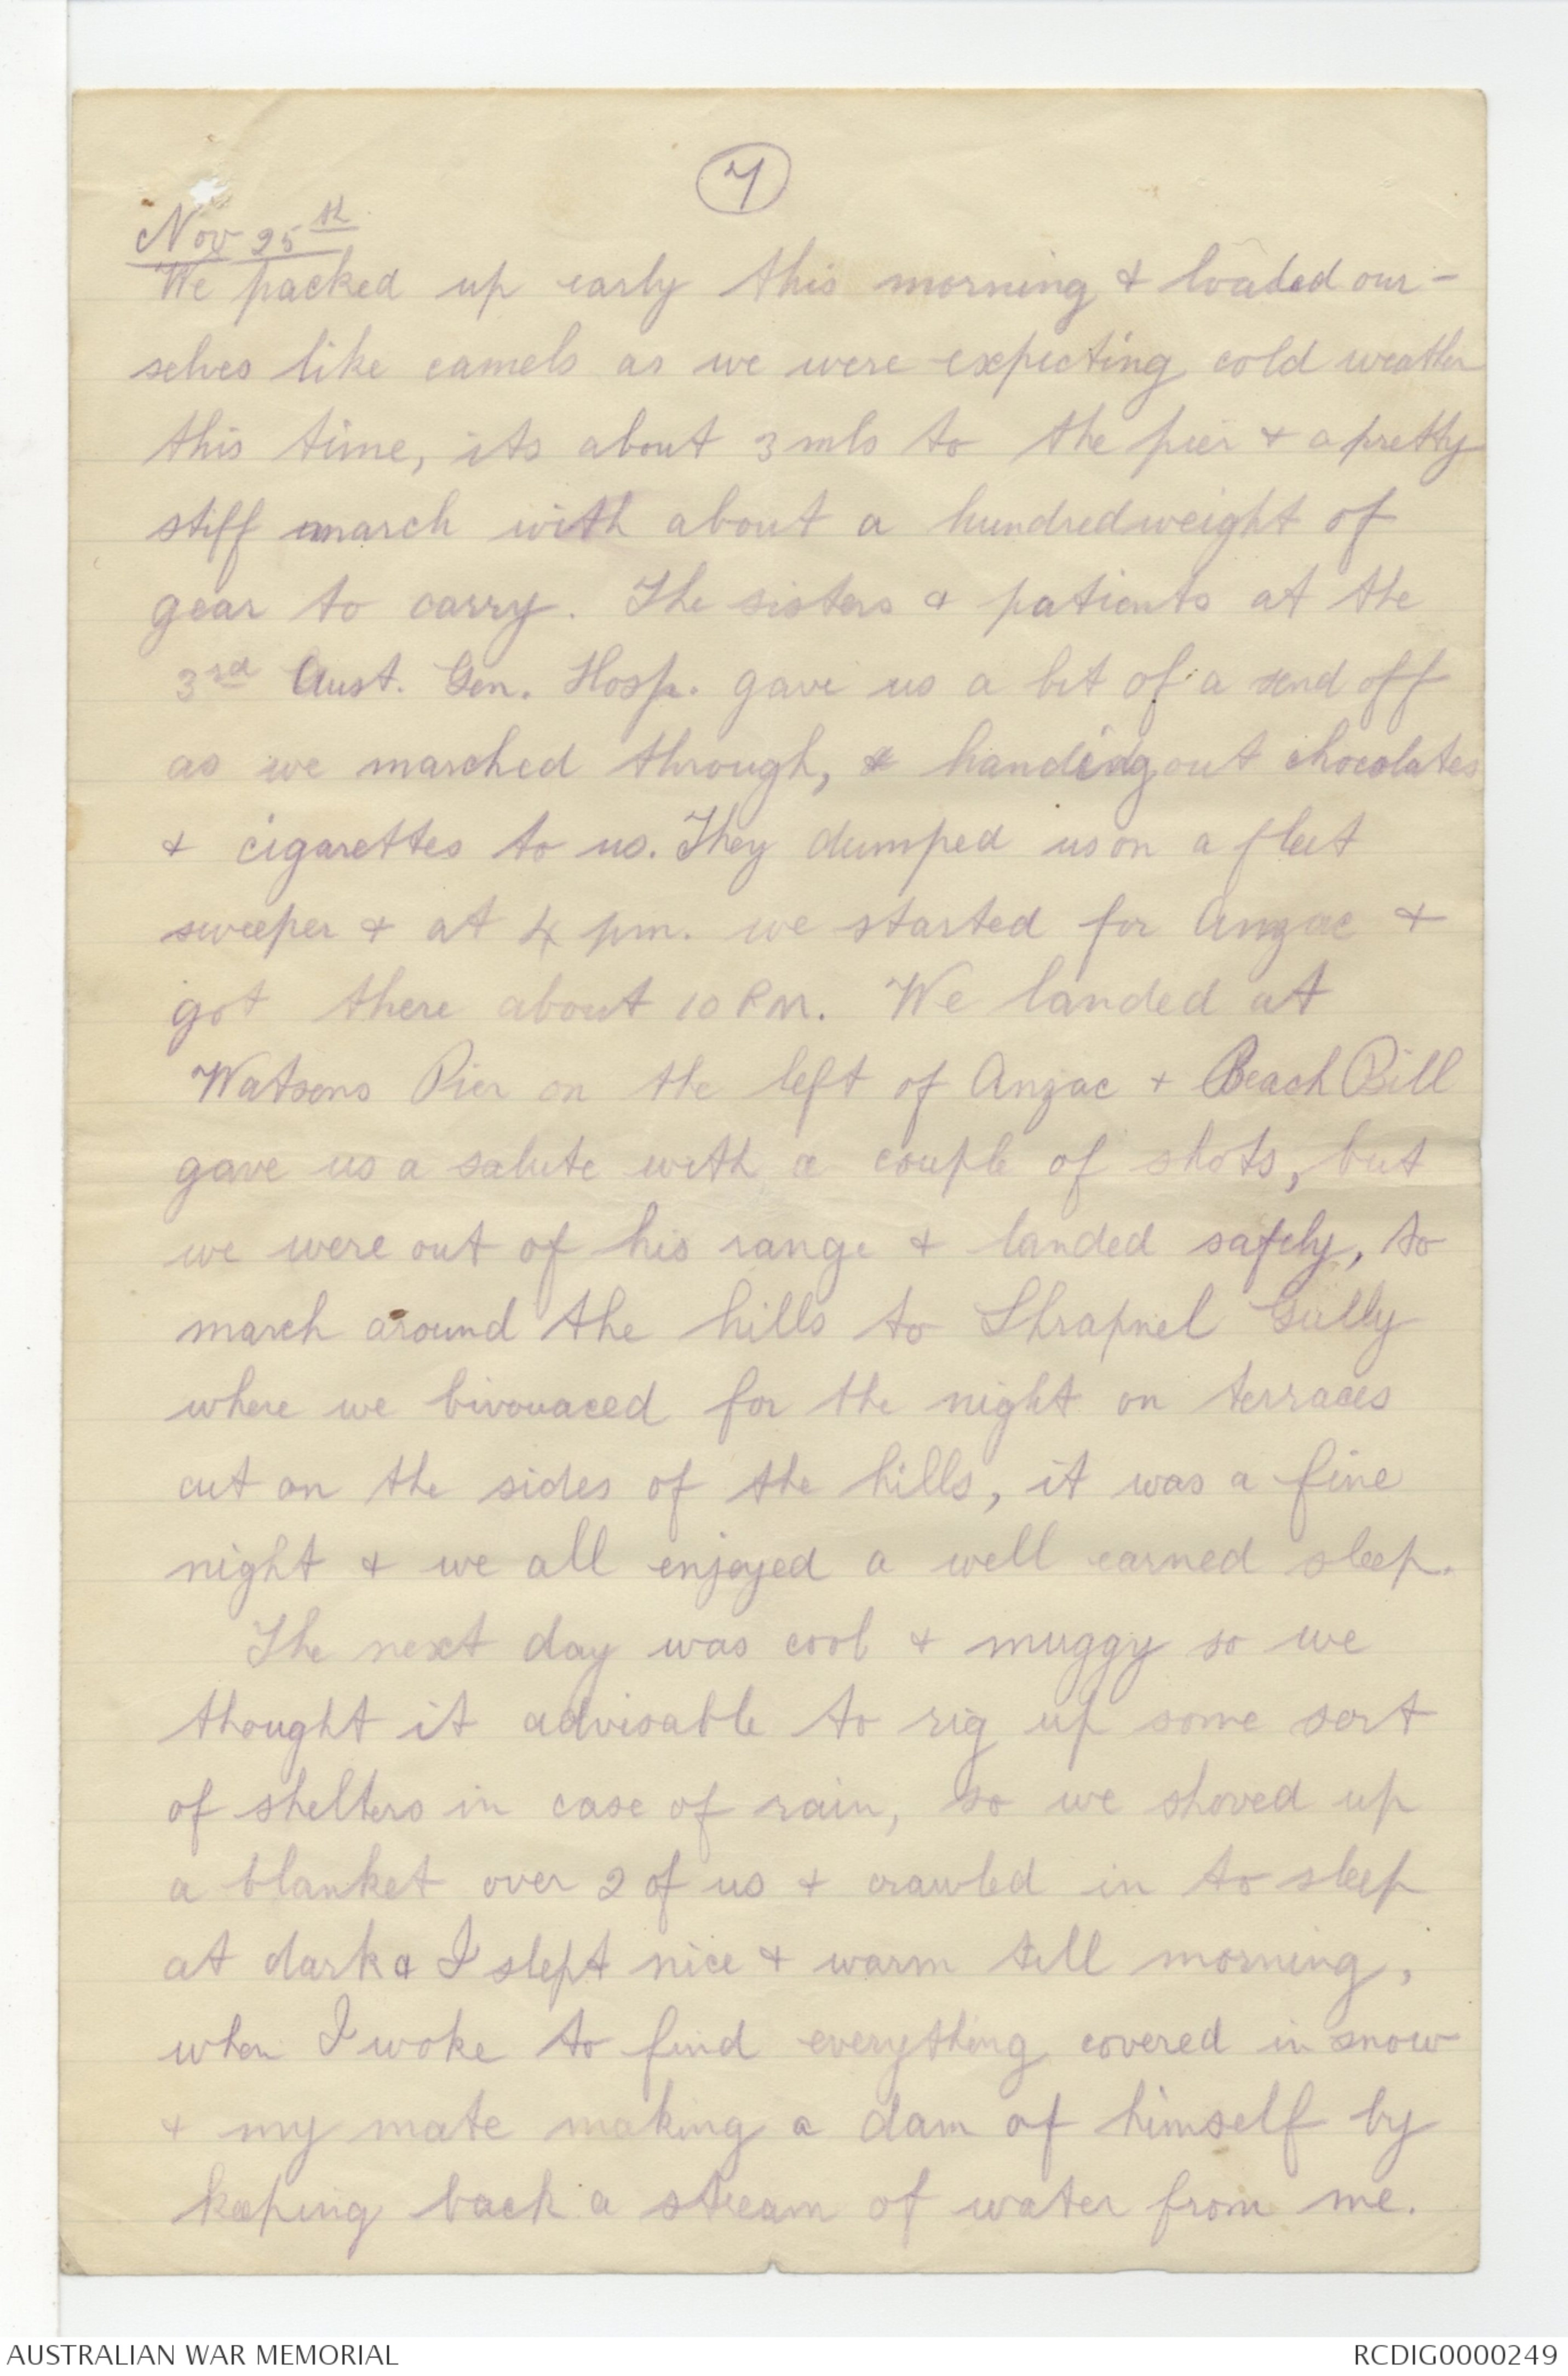 7
Nov 25th
We packed up early this morning & loaded our-
selves like camels as we were expecting cold weather
this time, its about 3 mls to the pier & a pretty
stiff march with about a hundredweight of
gear to carry. The sisters & patients at the
3rd Aust. Gen. Hosp. gave us a bit of a send off
as we marched through, & handing out chocolates
& cigarettes to us. They dumped us on a fleet
sweeper & at 4 pm. we started for Anzac &
got there about 10 PM. We landed at
Watsons Pier on the left of Anzac & Beach Bill
gave us a salute with a couple of shots, but
we were out of his range & landed safely, to
march around the hills to Shrapnel Gully
where we bivouaced for the night on terraces
cut on the sides of the hills, it was a fine
night & we all enjoyed a well earned sleep.
The next day was cool & muggy so we
thought it advisable to rig up some sort
of shelters in case of rain, so we shoved up
a blanket over 2 of us & crawled in to sleep
at dark & I slept nice & warm till morning,
when I woke to find everything covered in snow
& my mate making a dam of himself by
keeping back a stream of water from me.
AUSTRALIAN WAR MEMORIAL
RCDIG0000249